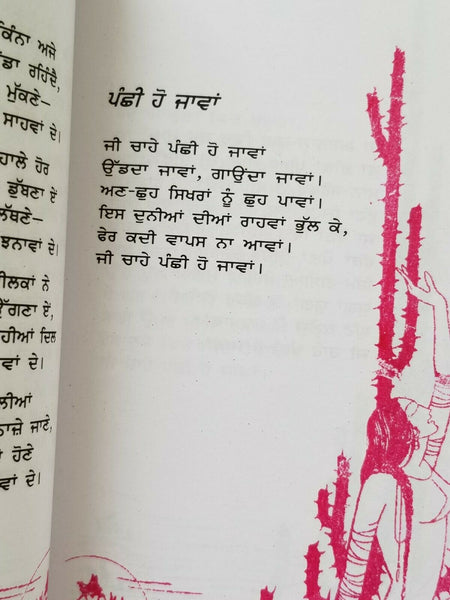 ਕਿੰਨਾ ਅਜੇ
ਰਹਿੰਦੈ,
ਮੁੱਕਣੇ–
ਸਾਹਵਾਂ ਦੇ।
ਹਾਲੇ ਹੋਰ
ਡੁੱਬਣਾ ਏਂ
ਲੱਭਣੇ–
ਝਨਾਵਾਂ ਦੇ।
ਨੇ
ਉੱਗਣਾ ਏਂ,
ਦਿਲ
ਦੇ।
ਜਾਣੇ,
ਹੋਣੇ
ਦੇ।
ਪੰਛੀ ਹੋ ਜਾਵਾਂ
ਜੀ ਚਾਹੇ ਪੰਛੀ ਹੋ ਜਾਵਾਂ
ਉੱਡਦਾ ਜਾਵਾਂ, ਗਾਉਂਦਾ ਜਾਵਾਂ।
ਅਣ-ਛੁਹ ਸਿਖਰਾਂ ਨੂੰ ਛੁਹ ਪਾਵਾਂ।
ਇਸ ਦੁਨੀਆਂ ਦੀਆਂ ਰਾਹਵਾਂ ਭੁੱਲ ਕੇ,
ਫੇਰ ਕਦੀ ਵਾਪਸ ਨਾ ਆਵਾਂ।
ਜੀ ਚਾਹੇ ਪੰਛੀ ਹੋ ਜਾਵਾਂ।